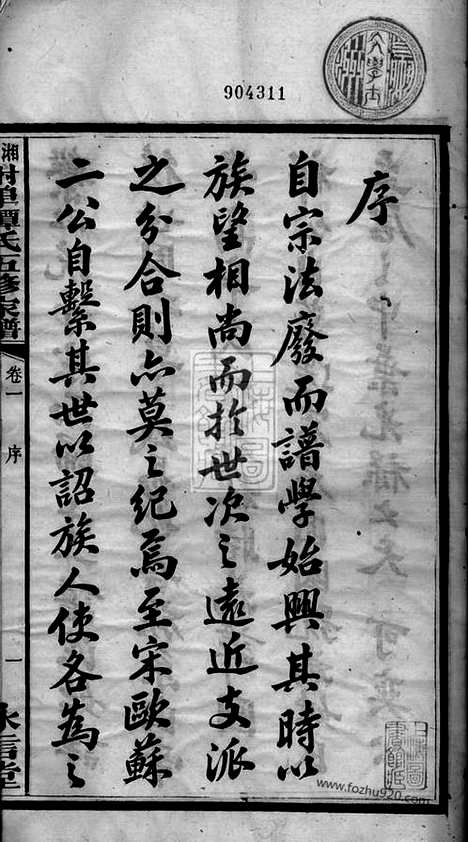 904311
序
自宗法廢而譜學始興其時以
族望相尚而於世次之遠近支派
之分合則亦莫之紀焉至宋歐蘇
二公自繫其世以詔族人使各為之
湘 譚氏五修家譜
卷一
序
一
永言堂
www.fozhu920.com